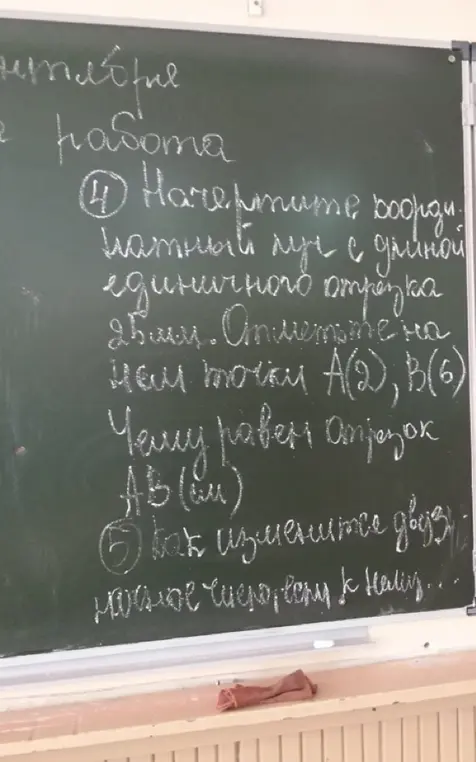 нтября
работа
④ Начертите коорди-
натный луч с длиной
единичного отрезка
25мм. Отметьте на
нём точки А(2), В(6)
Чему равен отрезок
АВ (см)
⑤ Как изменится двуз-
начное число, если к нему...